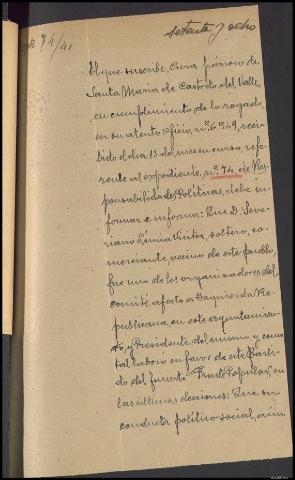 setenta y ocho
74/41
El que suscribe, Cura párroco de
Santa María de Castro del Valle,
en cumplimiento de lo rogado,
en su atento oficio, nº 6749, reci-
bido el dia 13 del mes en curso, refe-
rente al expediente, nº 74 de Res-
ponsabilidades Políticas, debe in-
formar e informa: Que D. Seve-
riano soltero, co-
merciante, vecino de este pueblo,
fue uno de los organizadores del
comité afecto a Izquierda Re-
publicana, en este ayuntamien-
to, y Presidente del mismo, y como
tal laboró en favor de este Parti-
do del funesto "Frente Popular", en
las ultimas elecciones: Que su
conducta político-social, aun